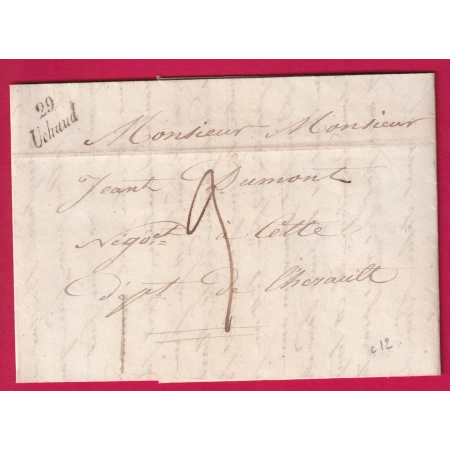 29
Uchaud
Monsieur Monsieur
Jeant Dumont
Négót à Cette
dépt De Lherault
3
c 12